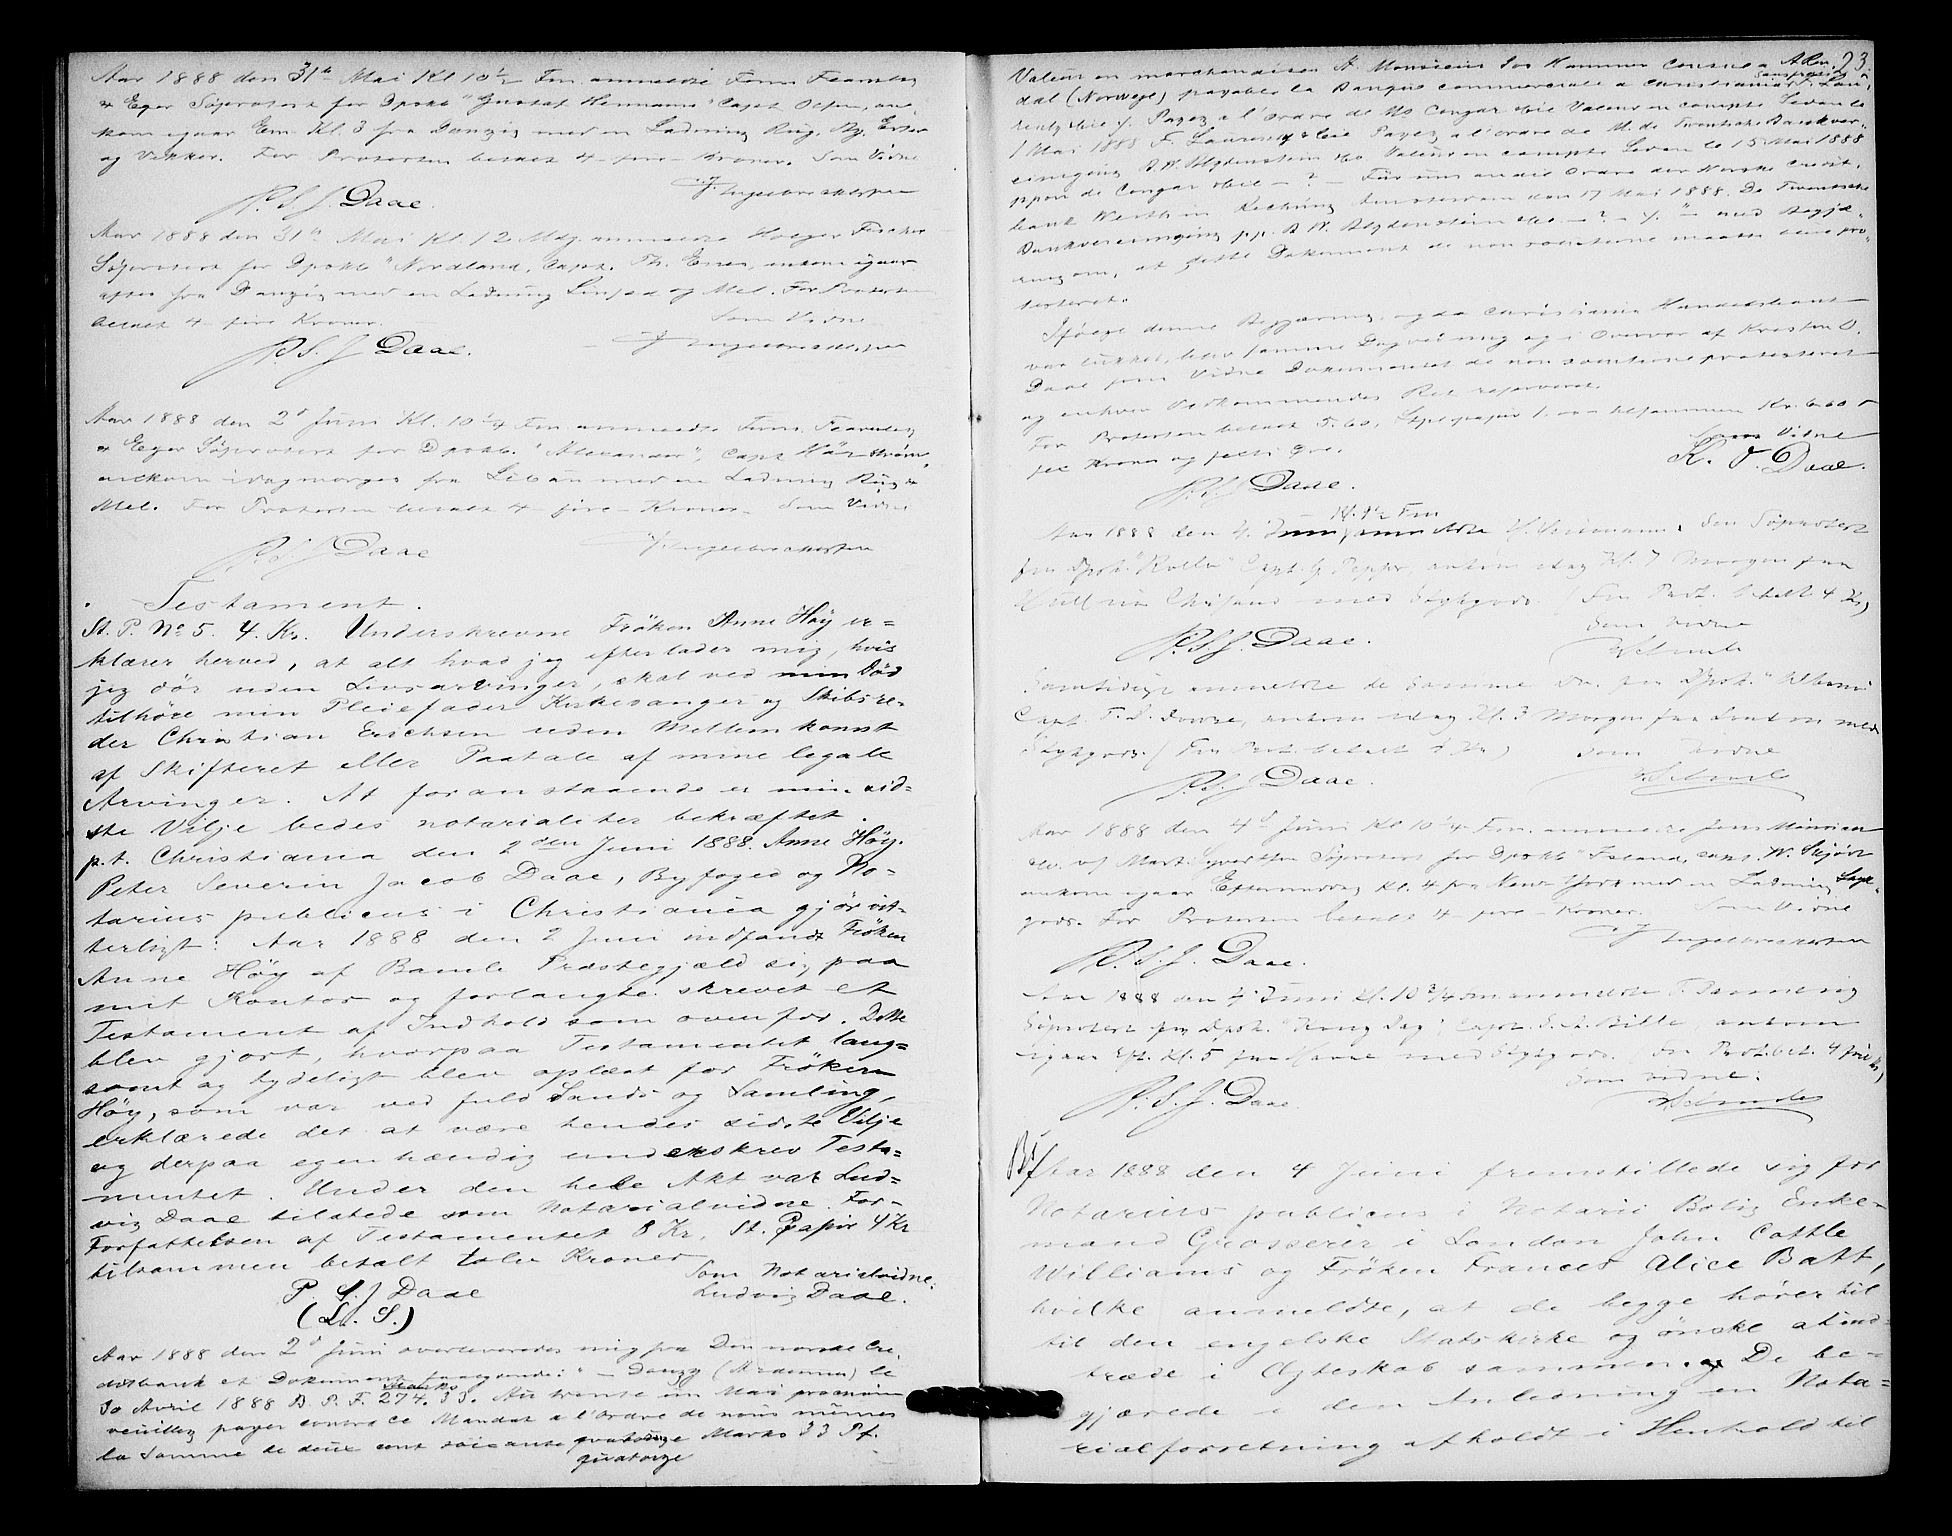 Aar 1888 den 31te Mai Kl 10½ Fm. anmeldte Firma Faanders
& Eger Søprotest for Dpskb "Gustaf Hermann" Capt Olsen, an-
kom igaar Em. Kl. 3 fra Danzig med en Ladning Rug, Byg, Erter
og Vikker. For Protesten betalt 4 - fire - Kroner. Som Vidne
P. S. J. Daae. J Ingebrethsen
Aar 1888 den 31te Mai Kl. 12 Mdg. anmeldte Holger Fischer
Søprotest for Dpskb "Nordland, Capt. Th. Enes, ankom igaar
aftes fra Danzig med en Ladning Linfrø og Mel. For Protesten
betalt 4 - fire Kroner. Som Vidne
P. S. J Daae. J Ingebrethsen
Aar 1888 den 2d Juni Kl. 10¼ Fm anmeldte Firma Faanders
& Eger Søprotest for Dpskb. "Alexander", Capt Härström,
ankom idag morges fra Libau med en Ladning Rug &
Mel. For Protesten betalt 4 - fire - Kroner. Som Vidne
P. S J Daae J Ingebrethsen
Testament.
St. P. No 5. 4. Kr. Underskrevne Frøken Anne Høy er=
klærer herved, at alt hvad jeg efterlader mig, hvis
jeg dör uden Livsarvinger, skal ved min Död
tilhöre min Pleiefader Kirkesanger og Skibsre-
der Christian Erichsen uden Mellemkomst
af Skifteret eller Paatale af mine legale
Arvinger. At foranstaaende er min sid=
ste Vilje bedes notarialiter bekræftet.
p.t. Christiania den 2den Juni 1888. Anne Höy.
Peter Severin Jacob Daae, Byfoged og No-
tarius publicus i Christiania gjör vit-
terligt: Aar 1888 den 2 Juni indfandt Fröken
Anne Höy af Bamle Præstegjæld sig paa
mit Kontor og forlangte skrevet et
Testament af Indhold som ovenfor. Dette
blev gjort, hvorpaa Testamentet lang=
somt og tydeligt blev oplæst for Fröken
Höy, som var ved fuld Sands og Samling,
erklærede det at være hendes sidste Vilje
og derpaa egenhændig underskrev Testa=
mentet. Under den hele Akt var Lud=
vig Daae tilstede som Notarialvidne. For-
Forfattelsen af Testamentet 8 Kr, St. Papir 4 Kr
tilsammen betalt tolv Kroner
Som Notarialvidne:
P. S. J Daae Ludvig Daae.
(L. S.)
Aar 1888 den 2d Juni overleveredes mig fra Den norske Cre-
ditbank et Dokument saalydende: " - Donzy (Ardennes) le
30 Avril 1888 B. P. F. 274. 33. Au trente un Mai prochain
veuillez payer contre ce Mandat a l'ordre de nous mêmes
la Somme de deux cent soixante quatorze Marks 33 Pf.
quatorze
93.
Valeur en marchandises A Monsieur Hammer
dal (Norwege) payable la Banque commerciale a Christiania F. Lau-
Payez a l'ordre de Ms Congar & Cie Valeur en compte Sedan le
1 Mai 1888 F. Laurent & Cie Payez a l'ordre de M. de Twentsche Bankver-
eeniging B. W. Blydenstein & Co Valeur en compte Sedan le 15 Mai 1888
Congar & Cie - ? - Für uns an die Ordre der Norske Credit-
bank Werth in Rechnung Amsterdam den 17 Mai 1888. De Twentsche
Bankvereeniging p.p. B W. Blydenstein & Co - ? - med Begjæ-
ring om, at dette Dokument de non solutione maatte blive pro-
testeret.
Ifölge denne Begjæring, og da Christiania Handelsbank
var lukket, blev samme Dag ved mig og i Overvær af Kristen O.
Daae som Vidne Dokumentet de non solutione protesteret
og enhver Vedkommendes Ret reserveret.
For Protesten betalt 5.60, Stplpapir 1.00 tilsammen Kr. 6.60 -
sex Kroner og sexti Öre. Som Vidne
P. S J Daae. K. O. Daae.
Kl. 9½ Fm
Aar 1888 den 4. Juni anmeldte H. Heitmann & Søn Søprotest
fra Dpsk. "Rollo" Capt. G. Pepper, ankom idag Kl. 7 Morgen fra
Hull via Chrsand med Stykgods. (For Prot. betalt 4 Kr)
Som Vidne
P. S J. Daae.
Samtidigt anmeldte de Samme do. for Dpsk. "Albano"
Capt. F. S. Dowse, ankom idag Kl. 3 Morgen fra London med
Stykgods. (For Prot. betalt 4 Kr) Som Vidne
P. S J Daae.
Aar 1888 den 4d Juni Kl 10¼ Fm. anmeldte
Søprotest for Dpskb "Island, Capt. W. Skjödt
ankom igaar Eftermiddag Kl. 4 fra New York med en Ladning Styk-
gods. For Protesten betalt 4 - fire - Kroner. Som Vidne
P. S. J. Daae. J Ingebrethsen
Aar 1888 den 4 Juni Kl. 10¾ Fm anmeldte T. Dannevig
Søprotest for Dpsk. "Kong Dag", Capt. Bille, ankom
igaar Eft. Kl. 5 fra Havre med Stykgods. (For Prot. bet. 4 fire Kr)
Som Vidne:
P. S. J. Daae
Aar 1888 den 4 Juni fremstillede sig for
Notarius publicus i Notarii Bolig Enke-
mand Grosserer i London John Cattle
Williams og Fröken Frances Alice Batt,
hvilke anmeldte, at de begge hörer til
til den engelske Statskirke og önske at ind-
træde i Ægteskab sammen. De be-
gjærede i den Anledning en Nota=
rialforretning afholdt i Henhold til